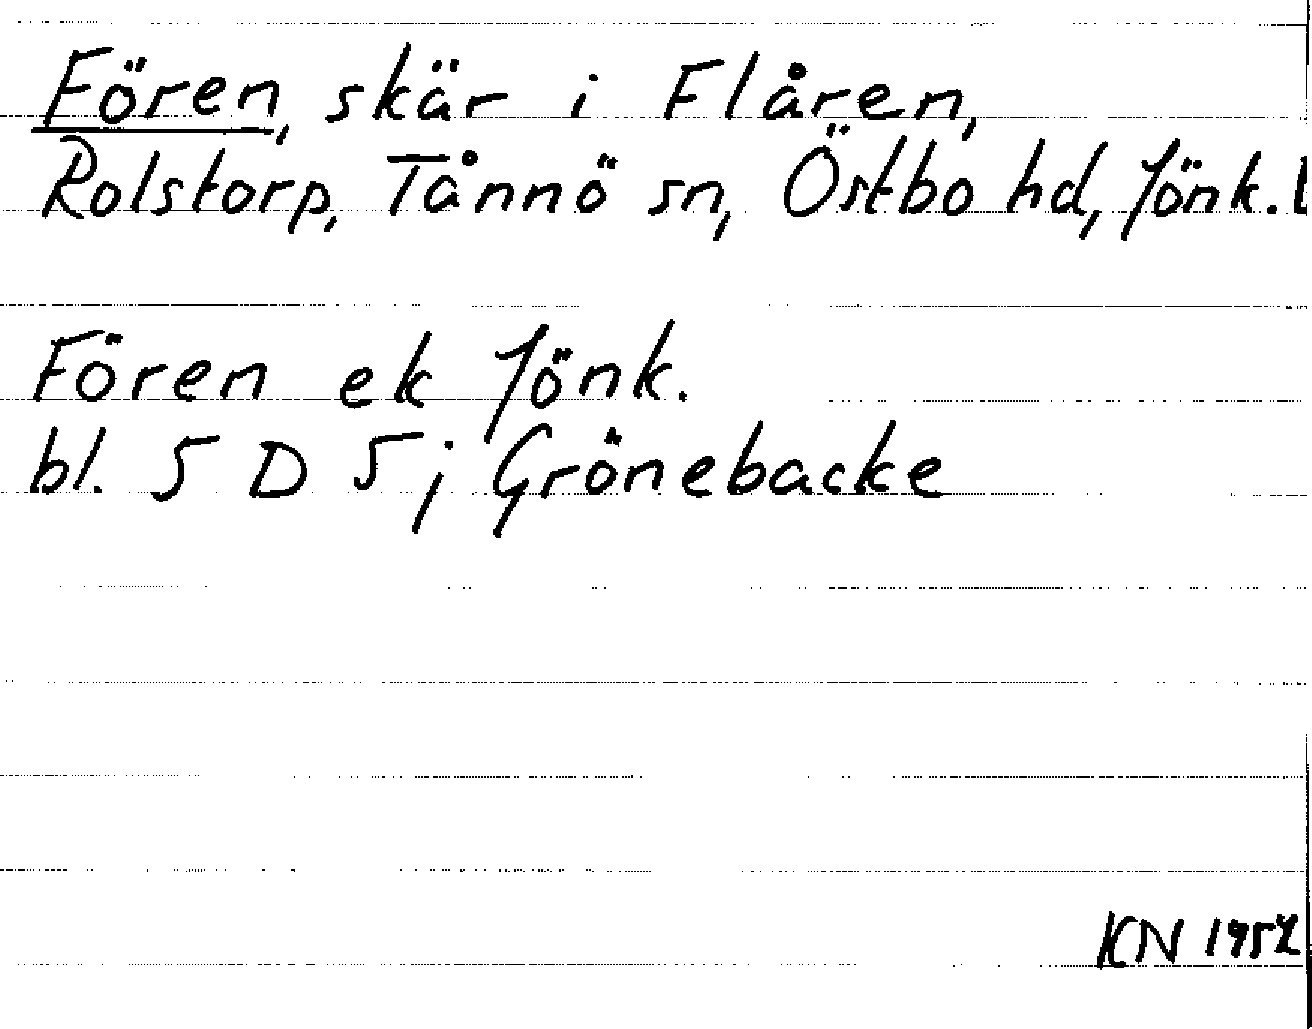 Fören, skär i Flåren,
Rolstorp, Tånnö sn, Östbo hd, Jönk. l
Fören ek Jönk.
bl. 5 D 5 j Grönebacke
KN